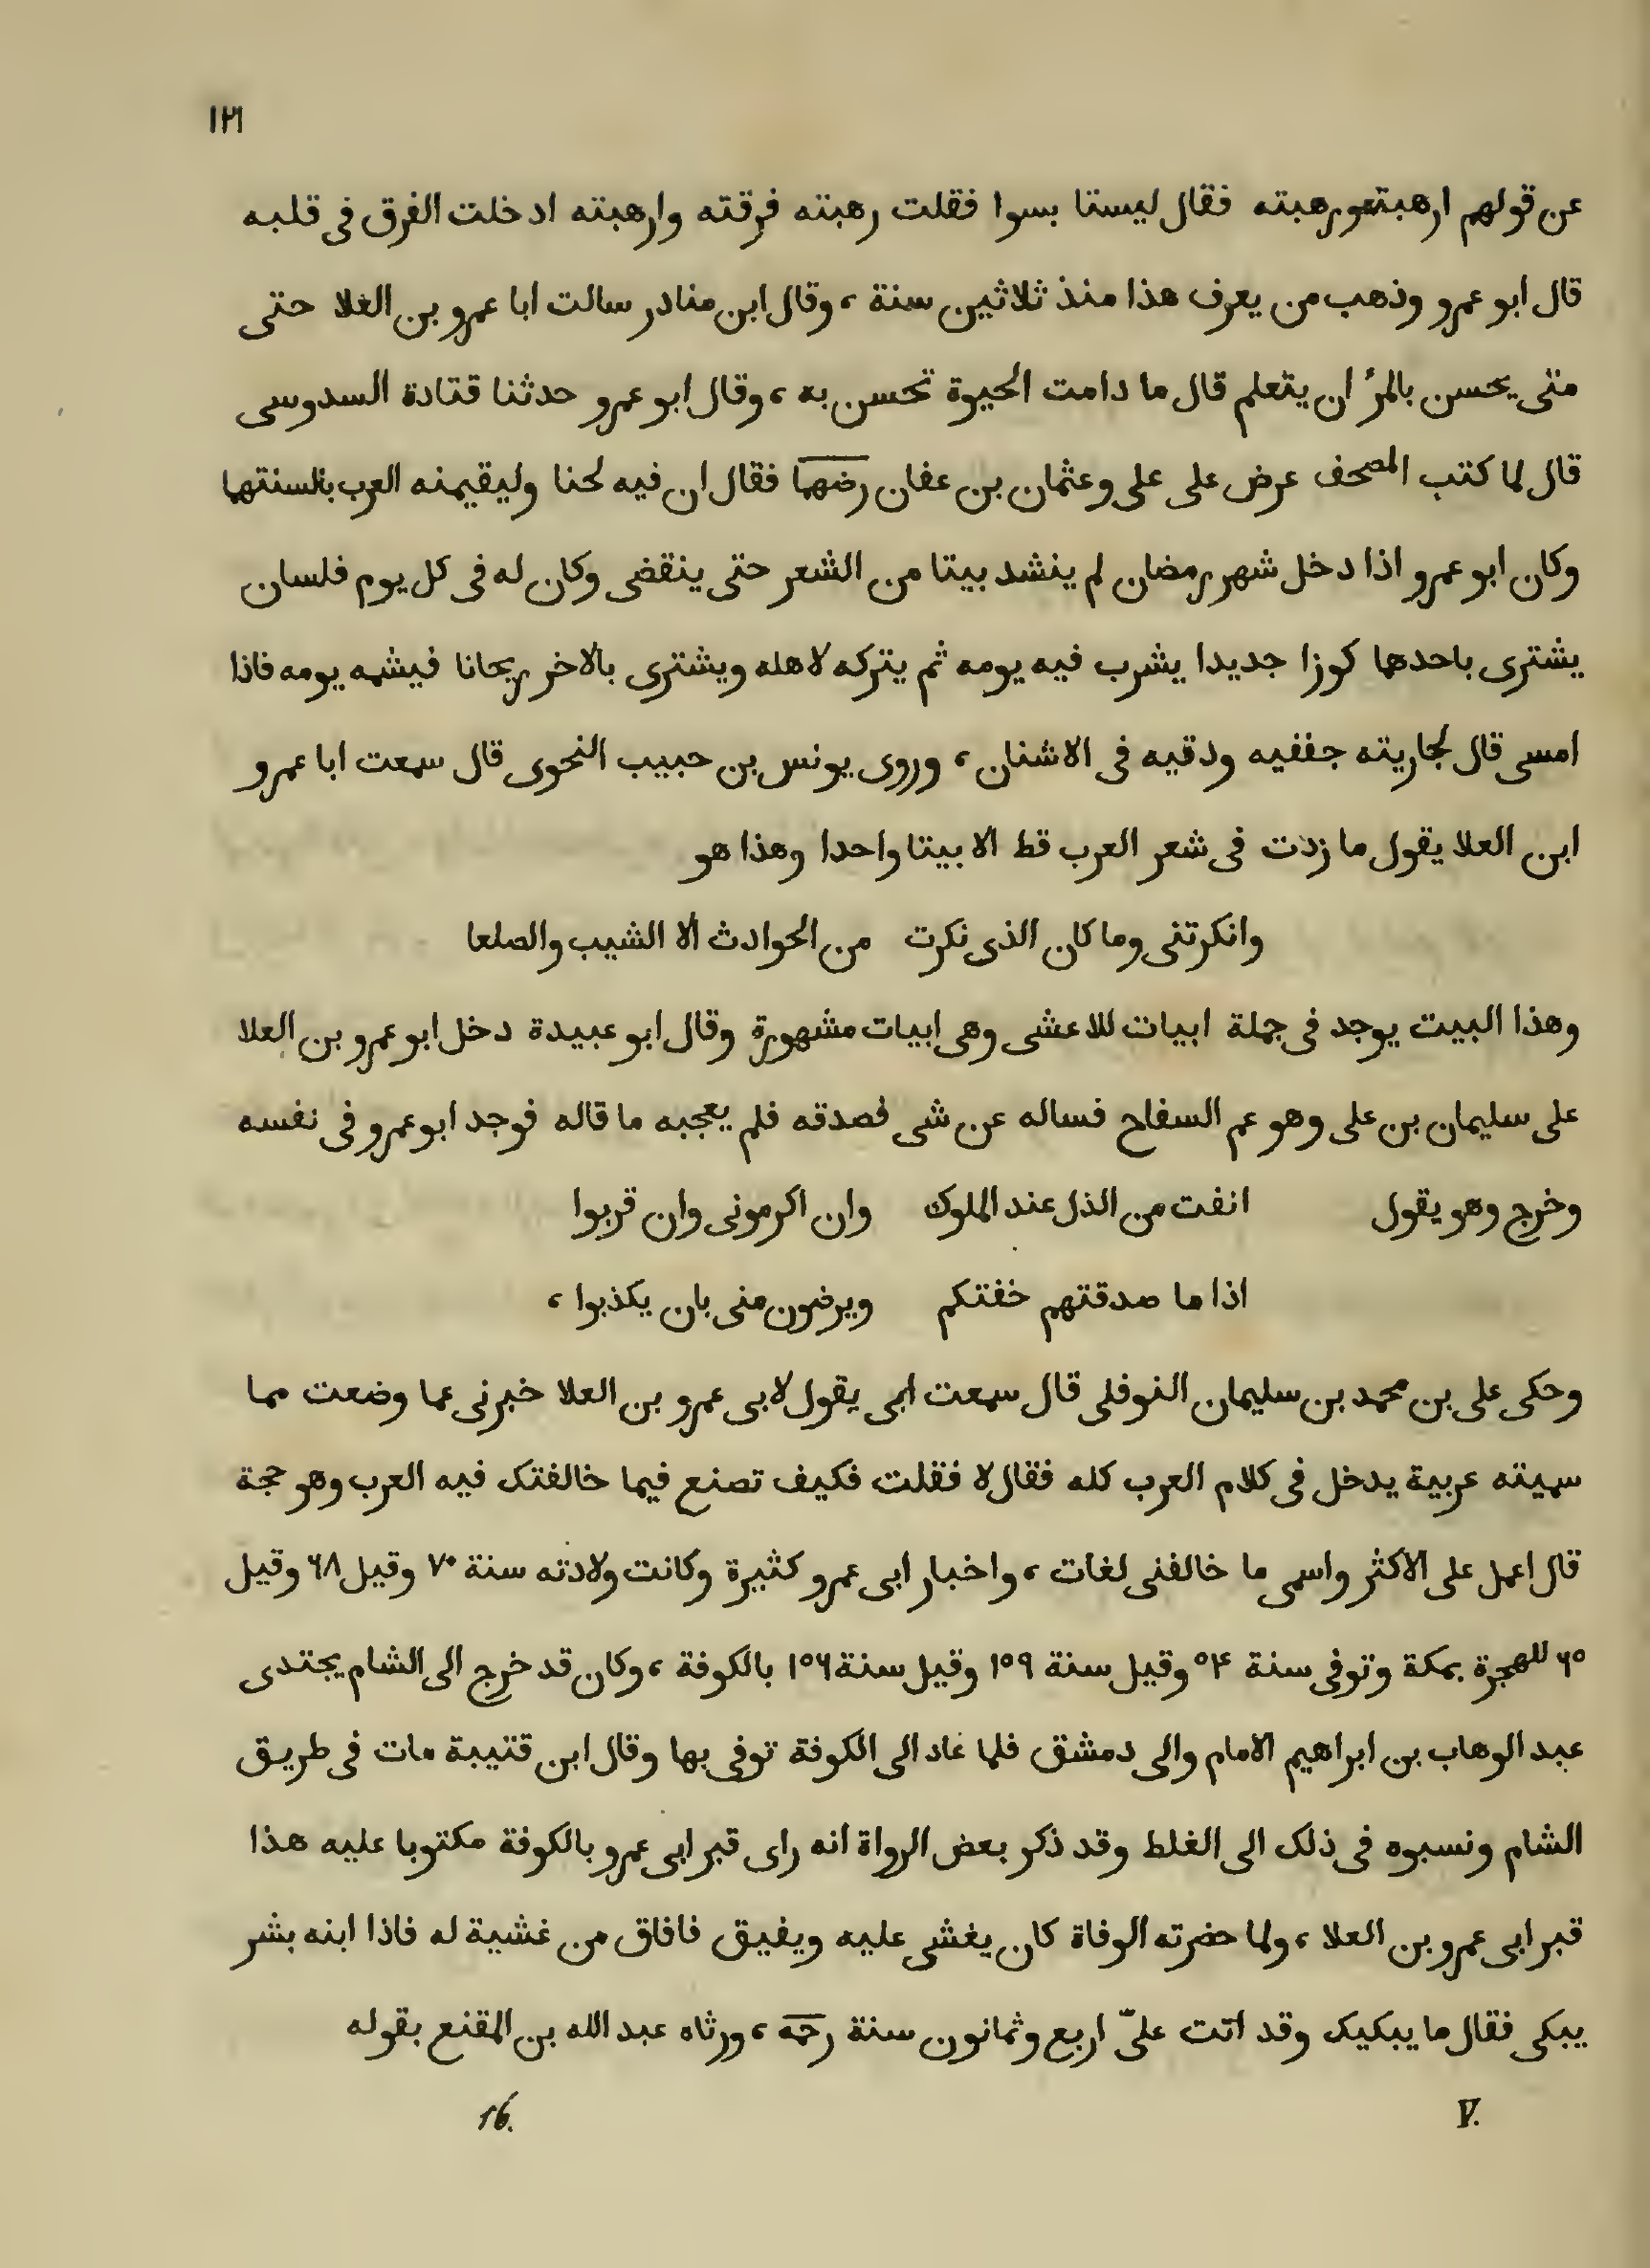 ١٢١
عن قولهم ارهبته ورهبته فقال ليستا بسوا فقلت رهبته فرقته وارهبته ادخلت الفرق فى قلبه
قال ابو عمرو وذهب من يعرف هذا منذ ثلاثين سنة ، وقال ابن منادر سالت ابا عمرو بن العلا حتى
متى يحسن بالمرُ ان يتعلم قال ما دامت الحيوة تحسن به ، وقال ابو عمرو حدثنا قتادة السدوسى
قال لما كتب المصحف عرض على على وعثمان بن عفان رضهما فقال ان فيه لحنا وليقيمنه العرب بالسنتها
وكان ابو عمرو اذا دخل شهر رمضان لم ينشد بيتا من الشعر حتى ينقضى وكان له فى كل يوم فلسان
يشترى باحدها كوزا جديدا يشرب فيه يومه ثم يتركه لاهله ويشترى بالاخر ريحانا فيشمه يومه فاذا
امسى قال لجاريته جففيه ودقيه فى الاشنان ، وروى يونس بن حبيب النحوى قال سمعت ابا عمرو
ابن العلا يقول ما زدت فى شعر العرب قط الا بيتا واحدا وهذا هو
وانكرتنى وما كان الذى نكرت من الحوادث الا الشيب والصلعا
وهذا البيت يوجد فى جملة ابيات للاعشى وهى ابيات مشهورة وقال ابو عبيدة دخل ابو عمرو بن العلا
على سليمان بن على وهو عم السفاح فساله عن شى فصدقه فلم يعجبه ما قاله فوجد ابو عمرو فى نفسه
وخرج وهو يقول انفت من الذل عند الملوك وان اكرمونى وان قربوا
اذا ما صدقتهم خفتكم ويرضون منى بان يكذبوا ،
وحكى على بن محمد بن سليمان النوفلى قال سمعت ابى يقول لابى عمرو بن العلا خبرنى عما وضعت مما
سميته عربية يدخل فى كلام العرب كله فقال لا فقلت فكيف تصنع فيما خالفتك فيه العرب وهو حجة
قال اعمل على الاكثر واسمى ما خالفنى لغات ، واخبار ابى عمرو كثيرة وكانت ولادته سنة ٧٠ وقيل ٦٨ وقيل
٦٥ للهجرة بمكة وتوفى سنة ٥٤ وقيل سنة ١٥٩ وقيل سنة ١٥٦ بالكوفة ، وكان قد خرج الى الشام يجتدى
عبد الوهاب بن ابراهيم الامام والى دمشق فلما عاد الى الكوفة توفى بها وقال ابن قتيبة مات فى طريق
الشام ونسبوه فى ذلك الى الغلط وقد ذكر بعض الرواة انه راى قبر ابى عمرو بالكوفة مكتوبا عليه هذا
قبر ابى عمرو بن العلا ، ولما حضرته الوفاة كان يغشى عليه ويفيق فافاق من غشية له فاذا ابنه بشر
يبكى فقال ما يبكيك وقد اتت علىّ اربع وثمانون سنة رحمه ، ورثاه عبد الله بن المقنع بقوله
V. 16.